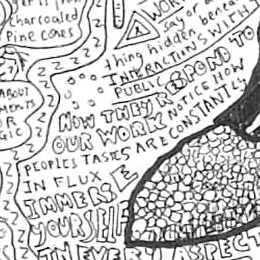 charcoaled
pine cones
WORK
say or a
thing hidden benea
INTERACTIONS WITH
PUBLIC
HOW THEY RESPOND TO
OUR WORK
NOTICE HOW
PEOPLES TASTES ARE CONSTANTLY
IN FLUX
IMMERSE
YOURSELF
IN EVERY ASPECT
ABOUT
MENTS
OR
GIC